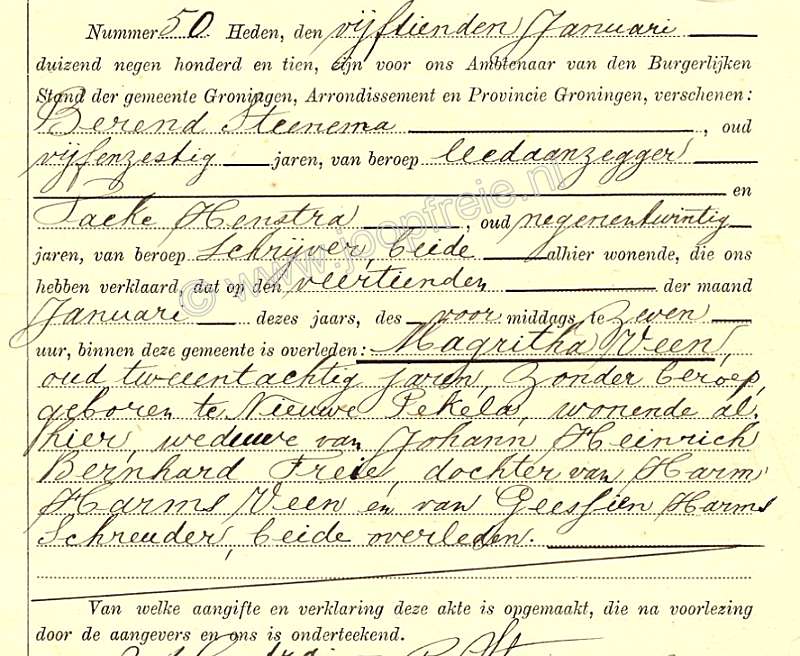 Nummer 50 Heden, den vijftienden Januari
duizend negen honderd en tien, zijn voor ons Ambtenaar van den Burgerlijken
Stand der gemeente Groningen, Arrondissement en Provincie Groningen, verschenen:
Berend Steenema, oud
vijfenzestig jaren, van beroep leedaanzegger
en
Taeke Henstra, oud negenentwintig
jaren, van beroep Schrijver, beide alhier wonende, die ons
hebben verklaard, dat op den veertienden der maand
Januari dezes jaars, des voor middags te zeven
uur, binnen deze gemeente is overleden: Magritha Veen,
oud tweeentachtig jaren, zonder beroep,
geboren te Nieuwe Pekela, wonende al
hier, weduwe van Johann Heinrich
Bernhard Freie, dochter van Harm
Harms Veen en van Geessien Harms
Schreuder, beide overleden.
Van welke aangifte en verklaring deze akte is opgemaakt, die na voorlezing
door de aangevers en ons is onderteekend.
© www.joopfreie.nl